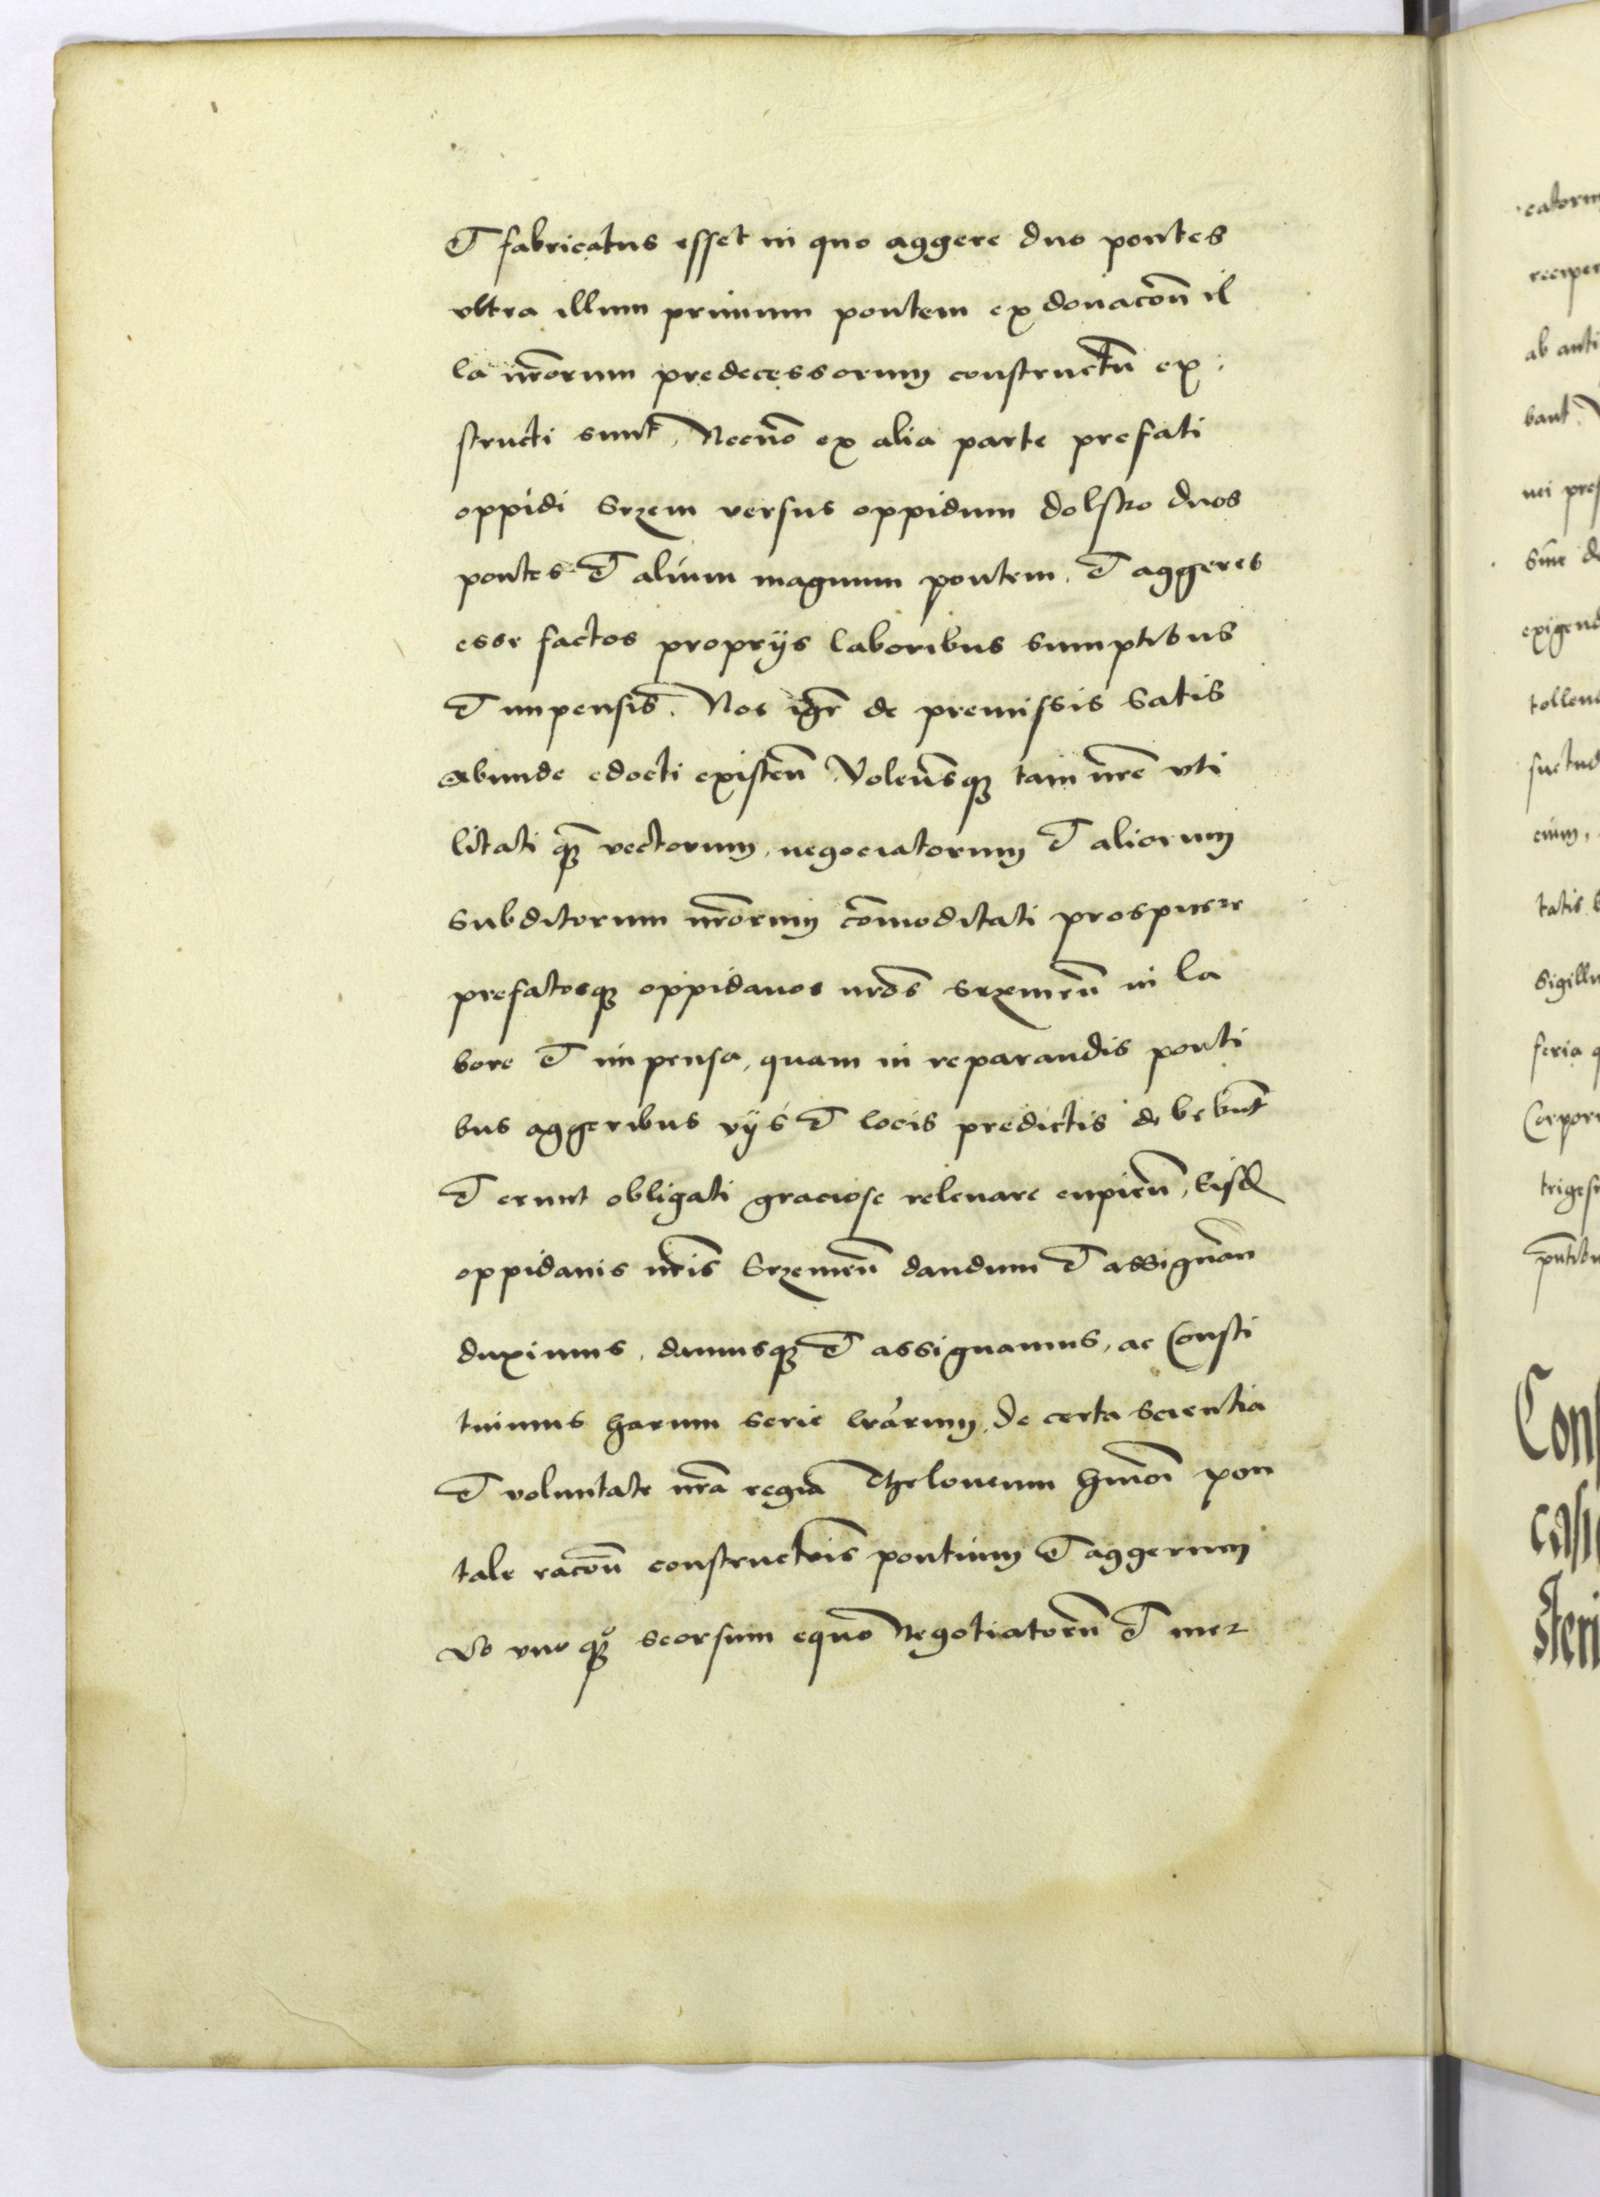 Et fabricatus esset in quo aggere duo pontes
vltra illum primum pontem ex donacōn il
la nr̄orum predecessorum constructū ex
structi sunt, Necnō ex alia parte prefati
oppidi Srzem versus oppidum dolsko duos
pontes Et alium magnum pontem, Et aggeres
esse factos proprijs laboribus sumptibus
Et impensis. Nos igr̄ de premissis satis
abunde edocti existeñ Volen̄sq; tam nr̄e vti
litati q̄ vectorum, negociatorum Et aliorum
subditorum nr̄orum cōmoditati prospicere
prefatosq; oppidanos nr̄os Srzemeñ in la
bore Et impensa, quam in reparandis ponti
bus aggeribus vijs Et locis predictis debebunt
Et erunt obligati graciose releuare cupieñ, Eisd
oppidanis nr̄is Srzemeñ dandum Et assignan
duximus, damusq; Et assignamus, ac Consti
tuimus harum serie lrārum, de certa scientia
Et voluntate nr̄a regia Theloneum hm̄oi pon
tale racōn constructōis pontium Et aggerum
Vt vnoq; seorsum equo Negotiatorū Et mer
catorum
reciper
ab anti
bant,
nei pref
siue de
exigend
tollend
suetud
cuius,
tatis S
Sigillu
feria q
Corpori
trigesi
pn̄tibu
Cons
casi
Steri